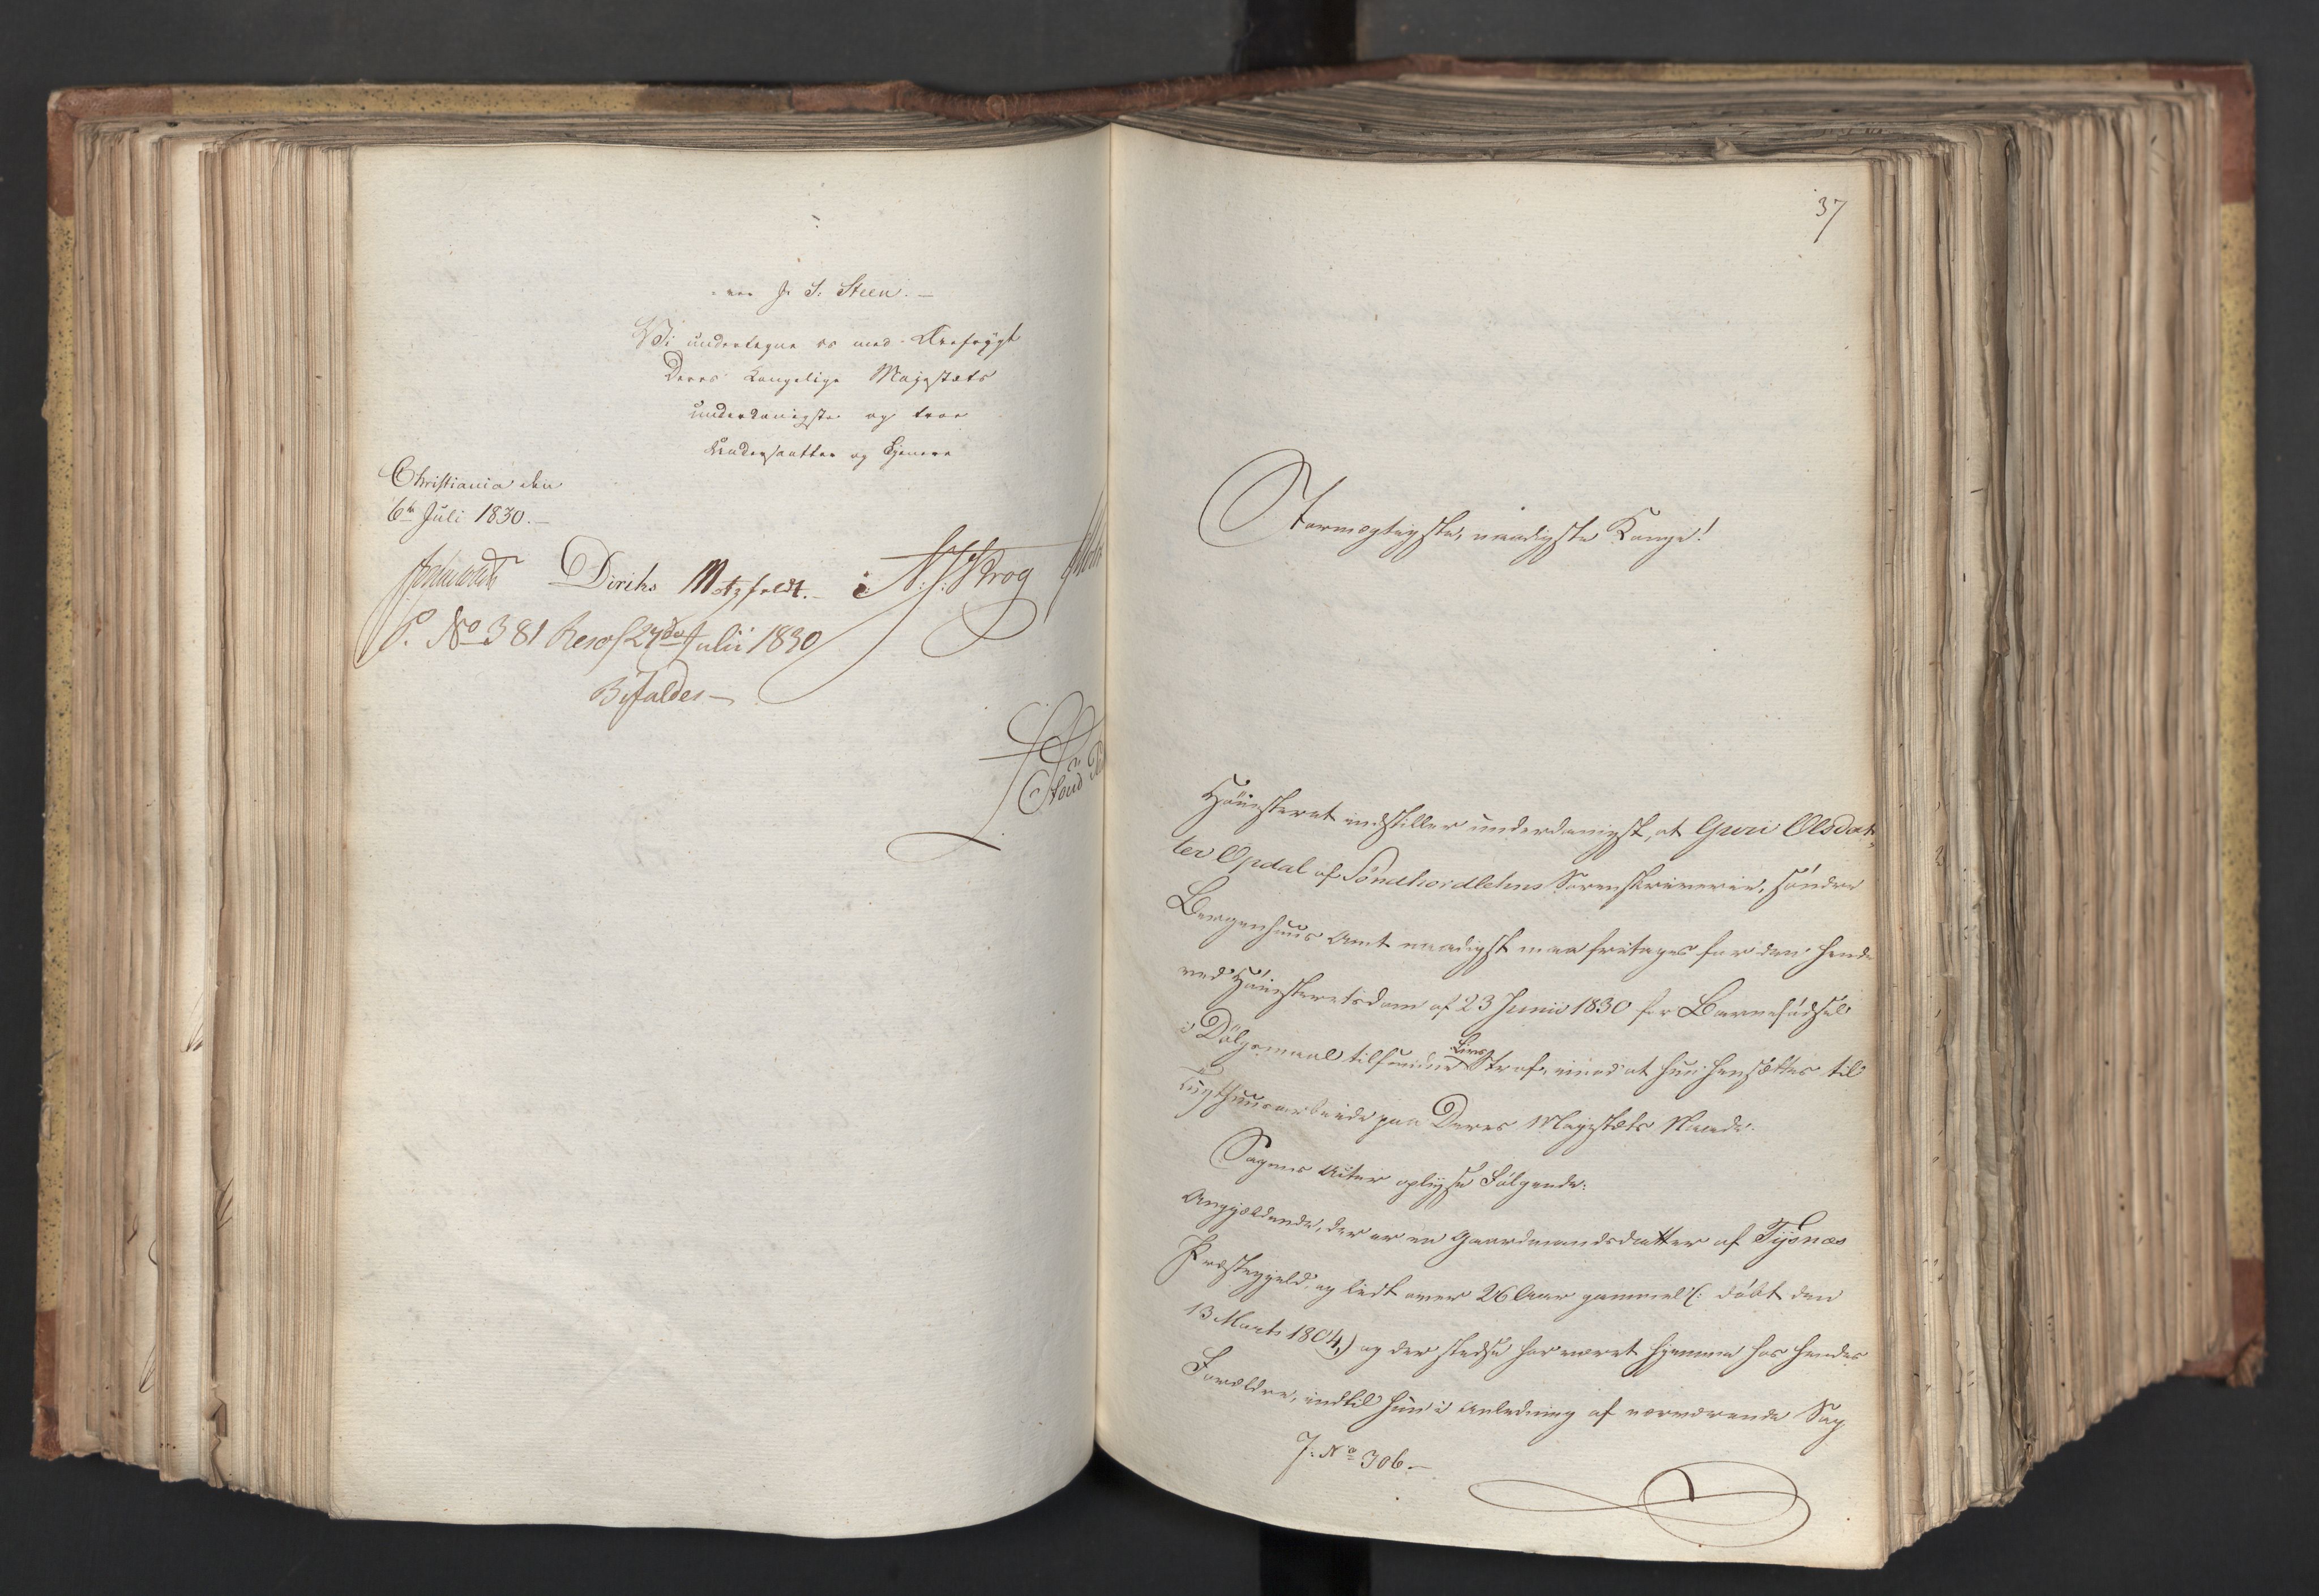 J: S: Steen. –
Vi undertegne os med Ærefrygt
Deres Kongelige Majestæts
underdanigste og troe
Undersaatter og Tjenere
Christiania den
6te Juli 1830. –
Diriks Motzfeldt. – Krog
P. No 381 Resol 27de Julii 1830
Bifaldes –
37
Stormægtigste, naadigste Konge!
Höiesteret indstiller underdanigst, at Guri Olsdat„
ter Opdal af Söndhordlehns Sorenskriverie, söndre
Bergenhuus Amt naadigst maa fritages for den hende
ved Höiesteretsdom af 23 Junii 1830 for Barnefödsel
i Dölgsmaal tilfundne Livs Straf, imod at hun hensættes til
Tugthuusarbeide paa Deres Majestæts Naade.
Sagens Acter oplyse Fölgende:
Angjældende, der er en Gaardmandsdatter af Tysnæs
Præstegjeld, og lidt over 26 Aar gammel (: döbt den
13 Marts 1804,) og der stedse har været hjemme hos hendes
Forældre, indtil hun i Anledning af nærværende Sag
J: No 306. –